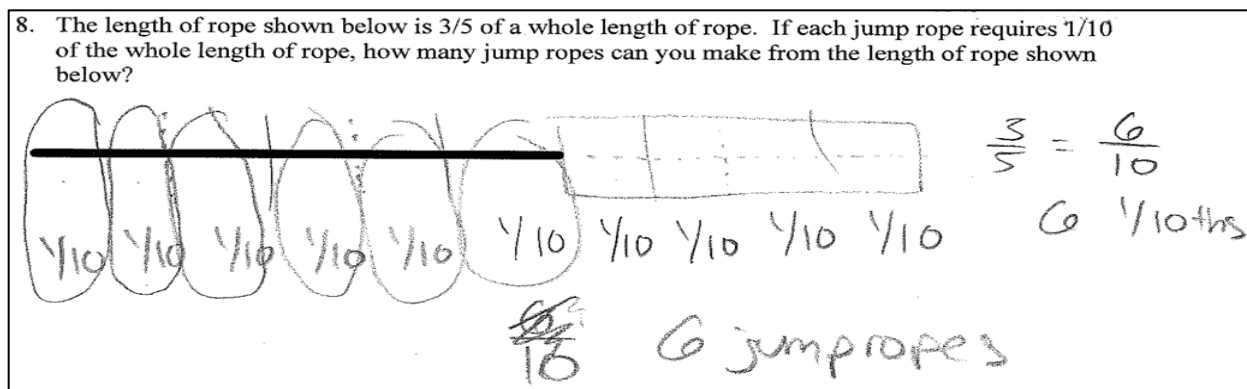 8. The length of rope shown below is 3/5 of a whole length of rope. If each jump rope requires 1/10
of the whole length of rope, how many jump ropes can you make from the length of rope shown
below?
3/5 = 6/10
6 1/10ths
1/10 1/10 1/10 1/10 1/10 1/10 1/10 1/10 1/10 1/10
10
6 jumpropes